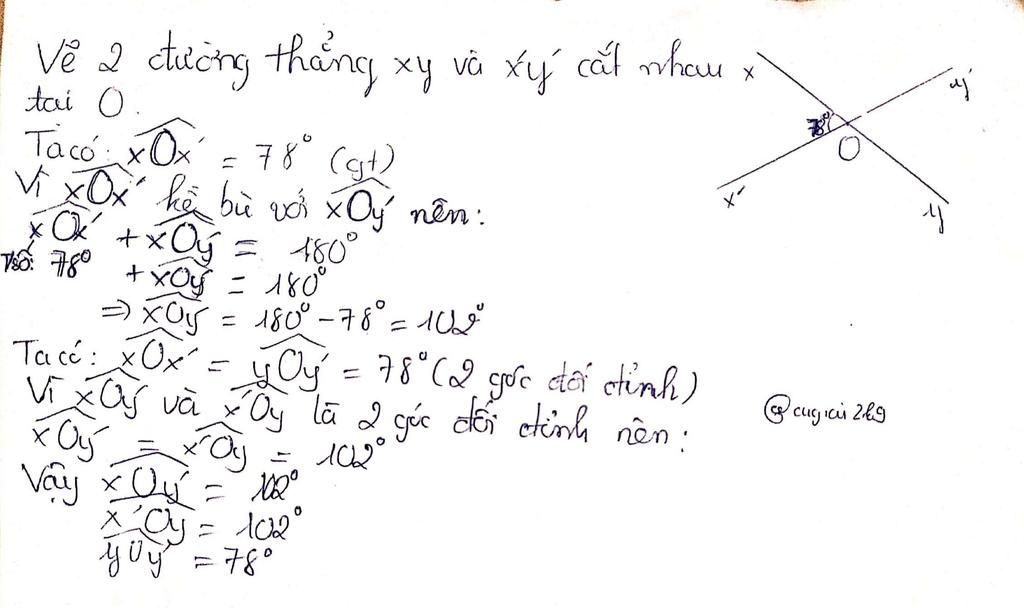 Vẽ 2 đường thẳng xy và x'y' cắt nhau
tai O.
Ta có: xOx' = 78° (gt)
Vì xOx' kề bù với xOy' nên:
xOx' + xOy' = 180°
Tsố: 78° + xOy' = 180°
=> xOy' = 180° - 78° = 102°
Ta có: xOx' = yOy' = 78° (2 góc đối đỉnh)
Vì xOy' và x'Oy là 2 góc đối đỉnh nên:
xOy' = x'Oy = 102°
Vậy xOy' = 102°
x'Oy = 102°
yOy' = 78°
x
y'
78°
O
x'
y
@cugiai2k9